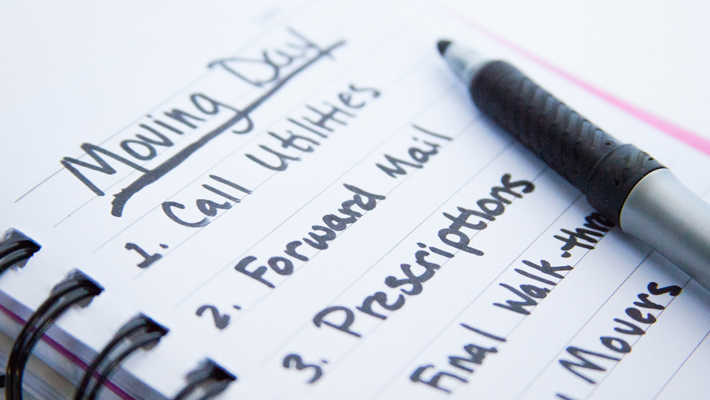 Moving Day
1. Call Utilities
2. Forward Mail
3. Prescriptions
Final Walk-thr
Movers